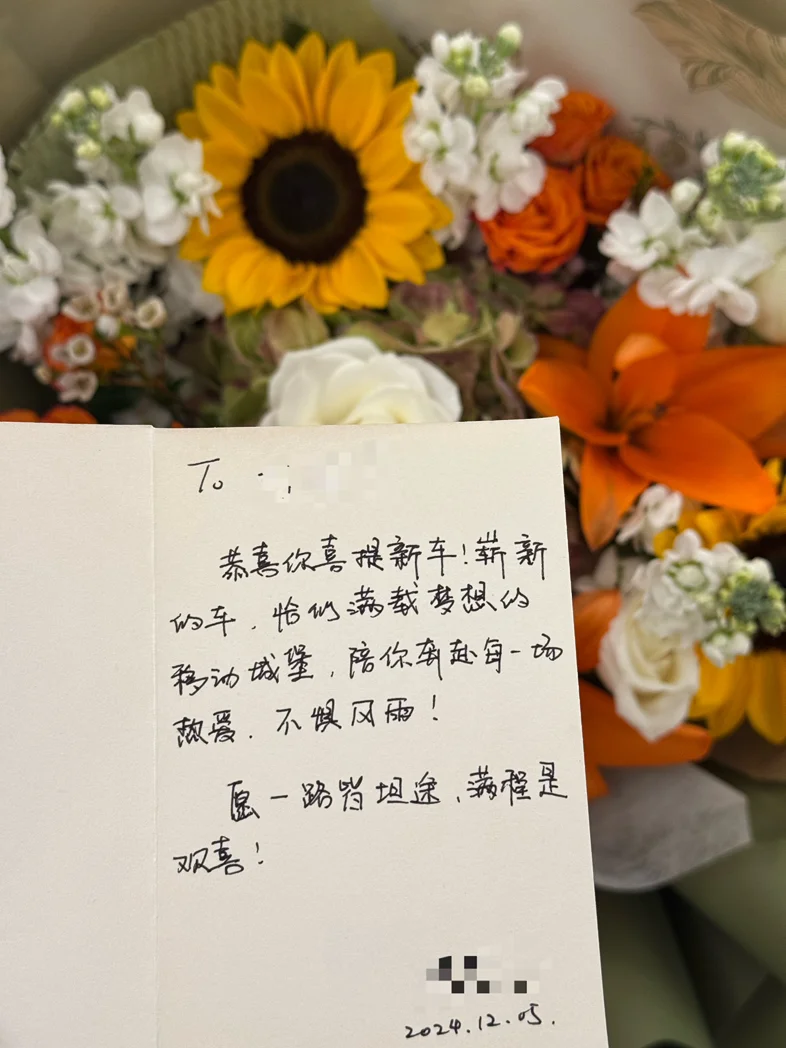 To
恭喜你喜提新车！崭新
的车，恰似满载梦想的
移动城堡，陪你奔赴每一场
热爱，不惧风雨！
愿一路皆坦途，满程是
欢喜！
2024.12.05.